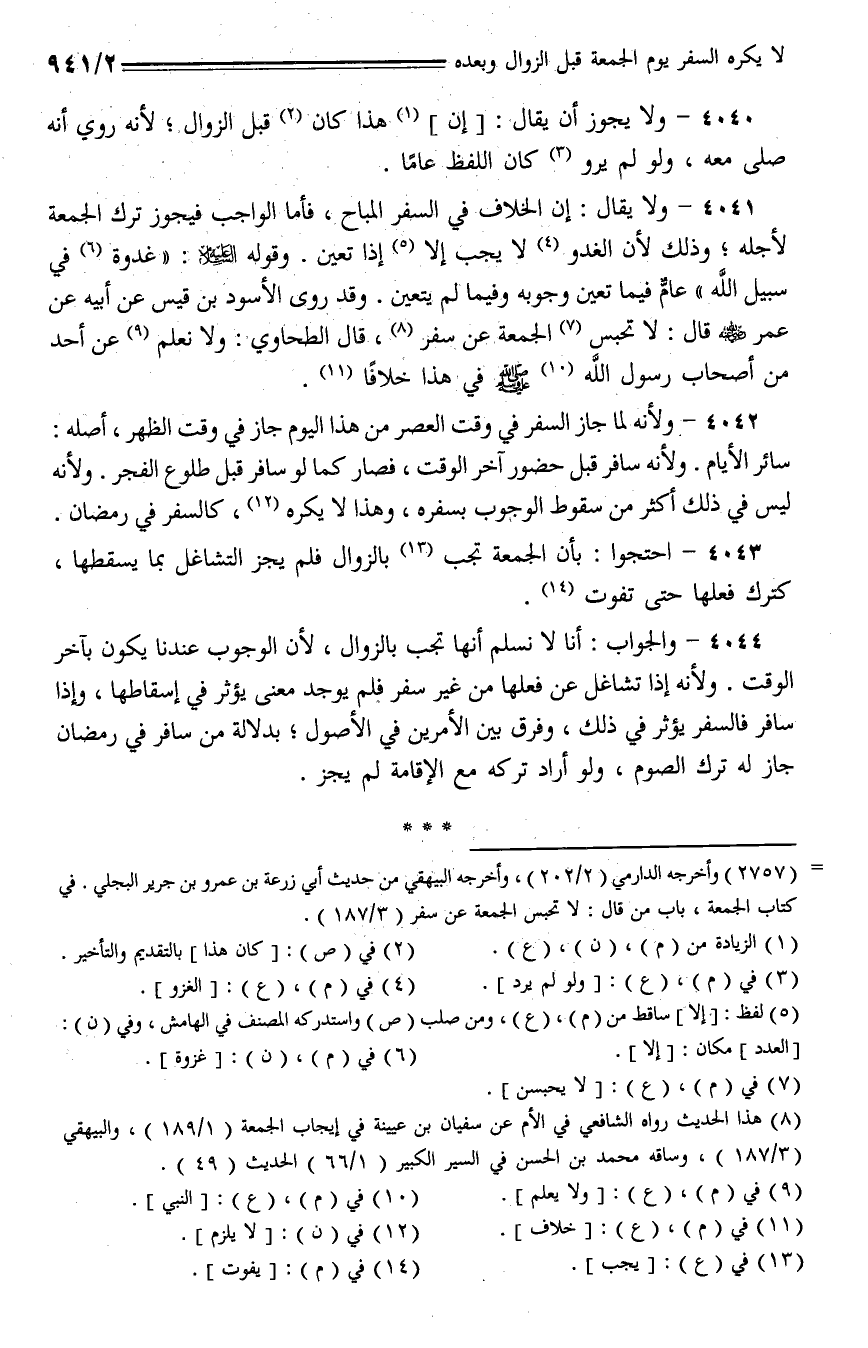 لا يكره السفر يوم الجمعة قبل الزوال وبعده ٩٤١/٢
٤٠٤٠ - ولا يجوز أن يقال : [ إن ] (١) هذا كان (٢) قبل الزوال ؛ لأنه روي أنه
صلى معه ، ولو لم يرو (٣) كان اللفظ عامًا .
٤٠٤١ - ولا يقال : إن الخلاف في السفر المباح ، فأما الواجب فيجوز ترك الجمعة
لأجله ؛ وذلك لأن الغدو (٤) لا يجب إلا (٥) إذا تعين . وقوله عليه السلام : « غدوة (٦) في
سبيل اللَّه » عامٌّ فيما تعين وجوبه وفيما لم يتعين . وقد روى الأسود بن قيس عن أبيه عن
عمر رضي الله عنه قال : لا تحبس (٧) الجمعة عن سفر (٨) ، قال الطحاوي : ولا نعلم (٩) عن أحد
من أصحاب رسول اللَّه (١٠) ﷺ في هذا خلافًا (١١) .
٤٠٤٢ - ولأنه لما جاز السفر في وقت العصر من هذا اليوم جاز في وقت الظهر ، أصله :
سائر الأيام . ولأنه سافر قبل حضور آخر الوقت ، فصار كما لو سافر قبل طلوع الفجر . ولأنه
ليس في ذلك أكثر من سقوط الوجوب بسفره ، وهذا لا يكره (١٢) ، كالسفر في رمضان .
٤٠٤٣ - احتجوا : بأن الجمعة تجب (١٣) بالزوال فلم يجز التشاغل بما يسقطها ،
كترك فعلها حتى تفوت (١٤) .
٤٠٤٤ - والجواب : أنا لا نسلم أنها تجب بالزوال ، لأن الوجوب عندنا يكون بآخر
الوقت . ولأنه إذا تشاغل عن فعلها من غير سفر فلم يوجد معنى يؤثر في إسقاطها ، وإذا
سافر فالسفر يؤثر في ذلك ، وفرق بين الأمرين في الأصول ؛ بدلالة من سافر في رمضان
جاز له ترك الصوم ، ولو أراد تركه مع الإقامة لم يجز .
* * *
= (٢٧٥٧) وأخرجه الدارمي (٢٠٢/٢) ، وأخرجه البيهقي من حديث أبي زرعة بن عمرو بن جرير البجلي . في
كتاب الجمعة ، باب من قال : لا تحبس الجمعة عن سفر (١٨٧/٣) .
(١) الزيادة من (م) ، (ن) ، (ع) . (٢) في (ص) : [ كان هذا ] بالتقديم والتأخير .
(٣) في (م) ، (ع) : [ ولو لم يرد ] . (٤) في (م) ، (ع) : [ الغزو ] .
(٥) لفظ : [ إلا ] ساقط من (م) ، (ع) ، ومن صلب (ص) واستدركه المصنف في الهامش ، وفي (ن) :
[ العدد ] مكان : [ إلا ] . (٦) في (م) ، (ن) : [ غزوة ] .
(٧) في (م) ، (ع) : [ لا يحبسن ] .
(٨) هذا الحديث رواه الشافعي في الأم عن سفيان بن عيينة في إيجاب الجمعة (١٨٩/١) ، والبيهقي
(١٨٧/٣) ، وساقه محمد بن الحسن في السير الكبير (٦٦/١) الحديث (٤٩) .
(٩) في (م) ، (ع) : [ ولا يعلم ] . (١٠) في (م) ، (ع) : [ النبي ] .
(١١) في (م) ، (ع) : [ خلاف ] . (١٢) في (ن) : [ لا يلزم ] .
(١٣) في (ع) : [ يجب ] . (١٤) في (م) : [ يفوت ] .